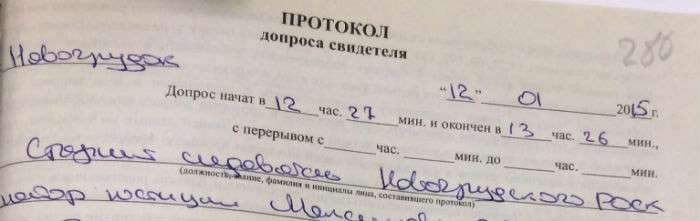 ПРОТОКОЛ
допроса свидетеля
280
Новогрудок
"12" 01 2015г.
Допрос начат в 12 час. 27 мин. и окончен в 13 час. 26 мин.,
с перерывом с час. мин. до час. мин.
Старший следователь Новогрудского РОСК
(должность, звание, фамилия и инициалы лица, составившего протокол)
майор юстиции